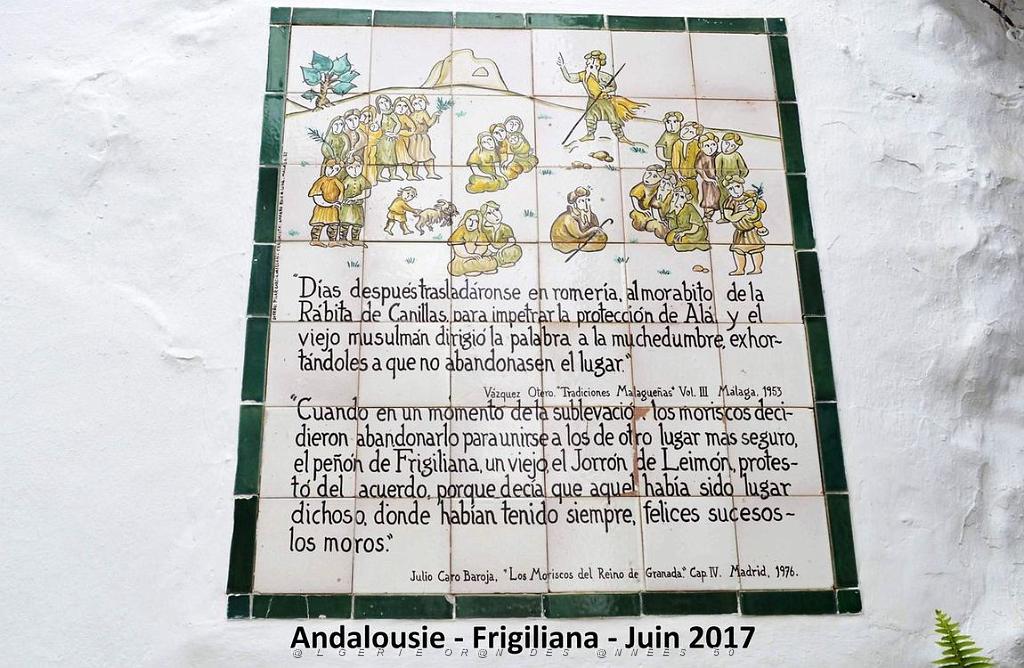 "Días después trasladáronse en romería, al morabito de la
Rábita de Canillas, para impetrar la protección de Alá, y el
viejo musulmán dirigió la palabra a la muchedumbre, exhor-
tándoles a que no abandonasen el lugar."
Vázquez Otero. "Tradiciones Malagueñas" Vol. III Málaga, 1953
"Cuando en un momento de la sublevació los moriscos deci-
dieron abandonarlo para unirse a los de otro lugar más seguro,
el peñón de Frigiliana, un viejo, el Jorrón de Leimón, protes-
tó del acuerdo, porque decía que aquel había sido lugar
dichoso, donde habían tenido siempre, felices sucesos-
los moros."
Julio Caro Baroja, "Los Moriscos del Reino de Granada." Cap. IV. Madrid, 1976.
Andalousie - Frigiliana - Juin 2017
@LGERIE OR@N DES @NNEES 50